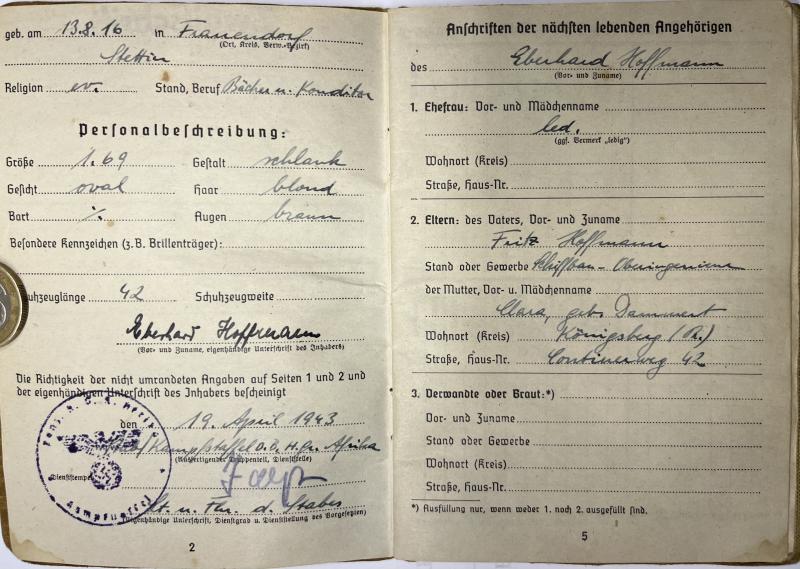 geb. am 13.8.16 in Frauendorf
(Ort, Kreis, Verw.-Bezirk)
Stettin
Religion ev. Stand, Beruf Bäcker u. Konditor
Personalbeschreibung:
Größe 1.69 Gestalt schlank
Gesicht oval Haar blond
Bart ∕. Augen braun
Besondere Kennzeichen (z.B. Brillenträger):
uhzeuglänge 42 Schuhzeugweite
Eberhard Hoffmann
(Vor- und Zuname, eigenhändige Unterschrift des Inhabers)
Die Richtigkeit der nicht umrandeten Angaben auf Seiten 1 und 2 und
der eigenhändigen Unterschrift des Inhabers bescheinigt
den 19. April 1943
Kampfstaffel O.B. H.Gr. Afrika
(Ausfertigender Truppenteil, Dienststelle)
Dienststempel
Lt. u. Fhr. d. Stabes
(Eigenhändige Unterschrift, Dienstgrad u. Dienststellung des Vorgesetzten)
2
Anschriften der nächsten lebenden Angehörigen
des Eberhard Hoffmann
(Vor- und Zuname)
1. Ehefrau: Vor- und Mädchenname
led.
(ggf. Vermerk „ledig“)
Wohnort (Kreis)
Straße, Haus-Nr.
2. Eltern: des Vaters, Vor- und Zuname
Fritz Hoffmann
Stand oder Gewerbe Schiffbau-Oberingenieur
der Mutter, Vor- u. Mädchenname
Clara, geb. Dammert
Wohnort (Kreis) Königsberg (Pr.)
Straße, Haus-Nr. Contienerweg 42
3. Verwandte oder Braut:*)
Vor- und Zuname
Stand oder Gewerbe
Wohnort (Kreis)
Straße, Haus-Nr.
*) Ausfüllung nur, wenn weder 1. noch 2. ausgefüllt sind.
5